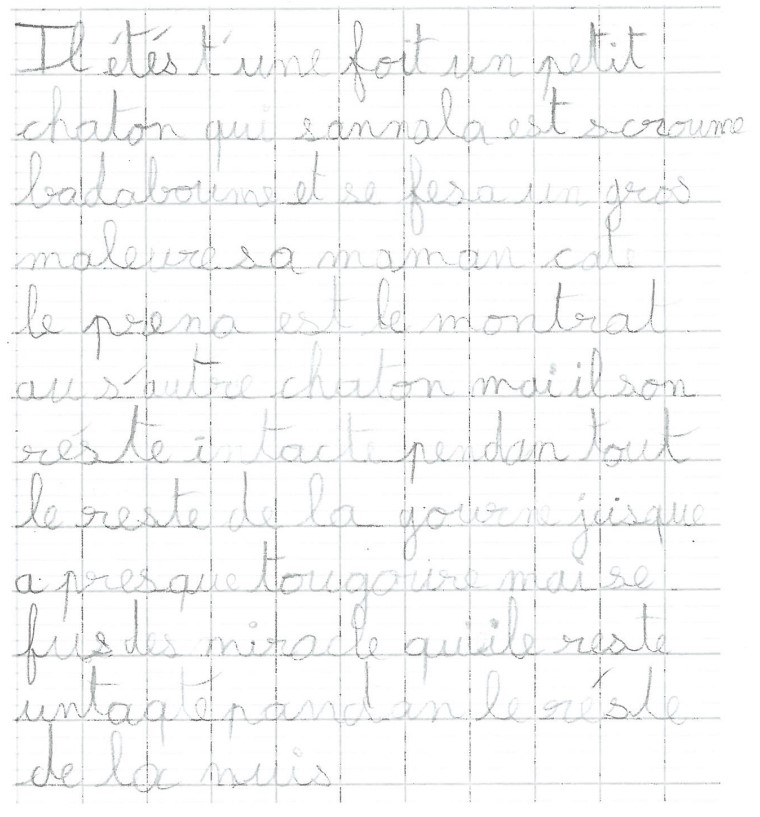 Il étés t'une foit un petit
chaton qui sannala est scroume
badaboume et se fesa un gros
maleure sa maman cate
le prena est le montrat
au s'autre chaton mai il son
réste intacte pendan tout
le reste de la gourne jusque
a presque tougoure mai se
fus des miracle qu'ile reste
untaqte pandan le réste
de la nuis